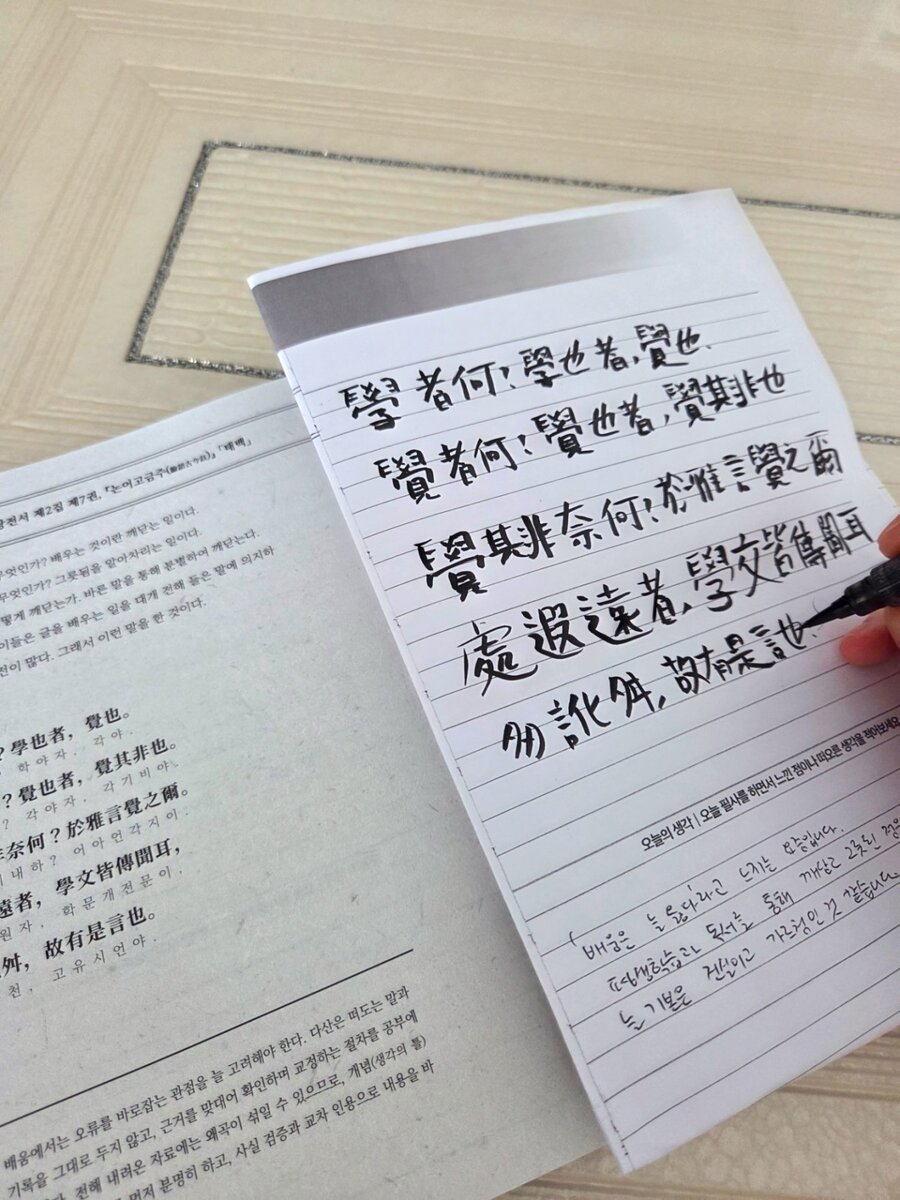 전서 제2집 제7권, 『논어고금주(論語古今註)』「태백」
무엇인가? 배우는 것이란 깨닫는 일이다.
무엇인가? 그릇됨을 알아차리는 일이다.
떻게 깨닫는가. 바른 말을 통해 분별하여 깨닫는다.
이들은 글을 배우는 일을 대개 전해 들은 말에 의지하
전이 많다. 그래서 이런 말을 한 것이다.
? 學也者, 覺也。
학야자. 각야.
? 覺也者, 覺其非也。
? 각야자. 각기비야.
奈何? 於雅言覺之爾。
내하? 어아언각지이.
遠者, 學文皆傳聞耳,
원자, 학문개전문이.
舛, 故有是言也。
천, 고유시언야.
배움에서는 오류를 바로잡는 관점을 늘 고려해야 한다. 다산은 떠도는 말과
기록을 그대로 두지 않고, 근거를 맞대어 확인하며 교정하는 절차를 공부에
다. 전해 내려온 자료에는 왜곡이 섞일 수 있으므로, 개념(생각의 틀)
먼저 분명히 하고, 사실 검증과 교차 인용으로 내용을 바
學者何? 學也者, 覺也.
覺者何? 覺也者, 覺其非也
覺其非奈何? 於雅言覺之爾
處遐遠者, 學文皆傳聞耳
多訛舛, 故有是言也.
오늘의 생각 | 오늘 필사를 하면서 느낀 점이나 떠오른 생각을 적어보세요
배움은 늘 옳다라고 느끼는 요즘입니다.
평생학습과 독서를 통해 깨닫고 그릇된 점을
늘 기본은 진실이고 가르침인 것 같습니다